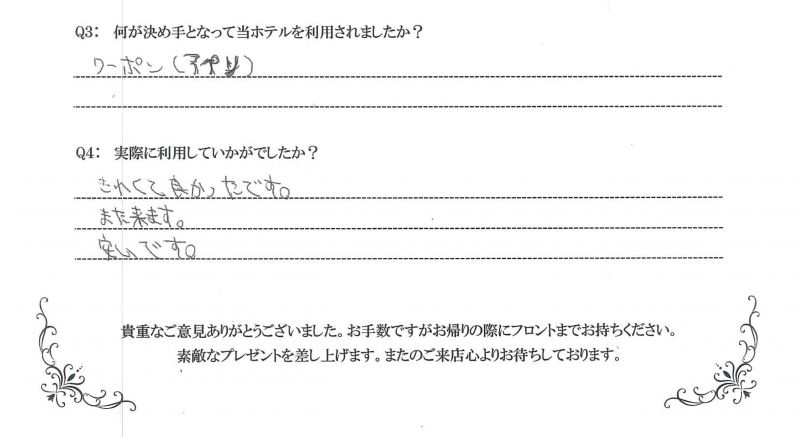 Q3: 何が決め手となって当ホテルを利用されましたか？
クーポン(アプリ)
Q4: 実際に利用していかがでしたか？
きれくて良かったです。
また来ます。
安心です。
貴重なご意見ありがとうございました。お手数ですがお帰りの際にフロントまでお持ちください。
素敵なプレゼントを差し上げます。またのご来店心よりお待ちしております。